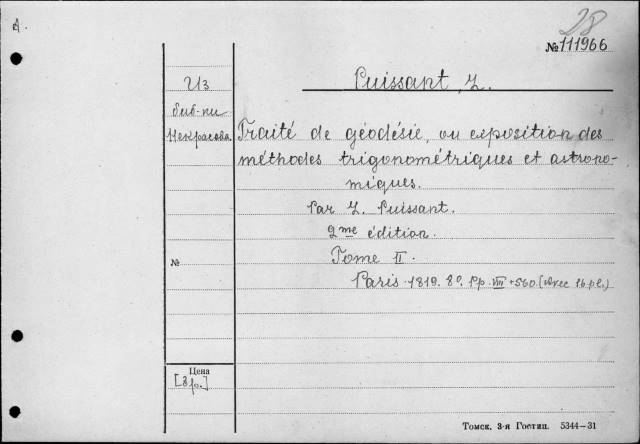 A.
28
№ 111966
Из
биб-ки
Некрасова
Puissant, L.
Traité de géodésie, ou exposition des
méthodes trigonométriques et astrono-
miques.
Par L. Puissant.
2me édition.
Tome II.
Paris 1819. 8º. Pp. VIII + 560. (Avec 16 pl.)
№
Цена
[3 р.]
Томск, 3-я Гостип. 5344—31